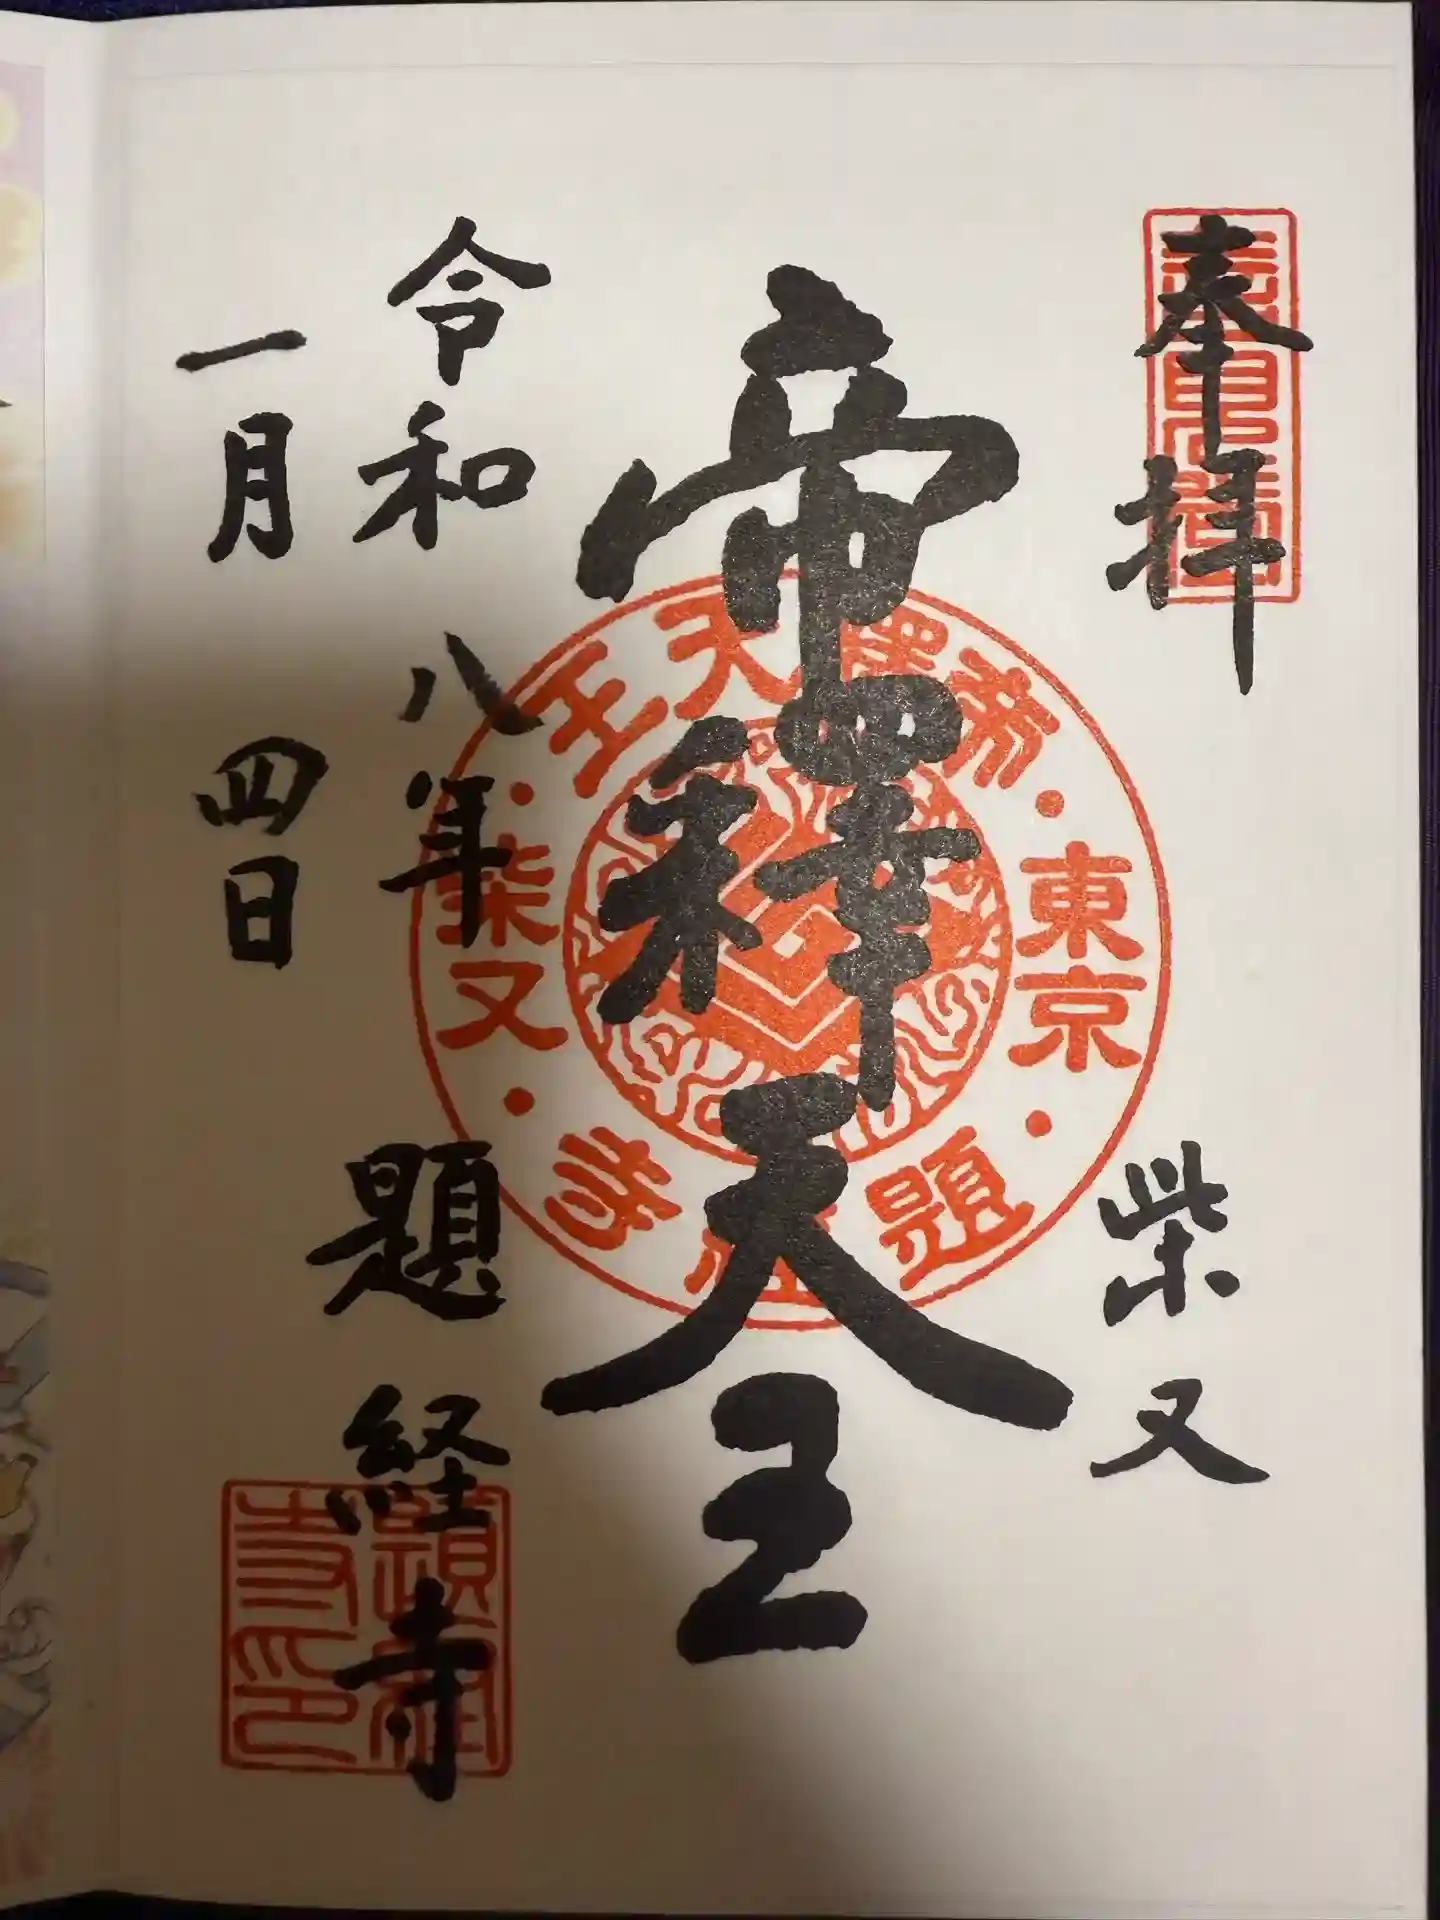 奉拝
柴又
帝釋天王
令和八年
一月四日
題経寺
帝釋天王
東京
柴又
題経寺